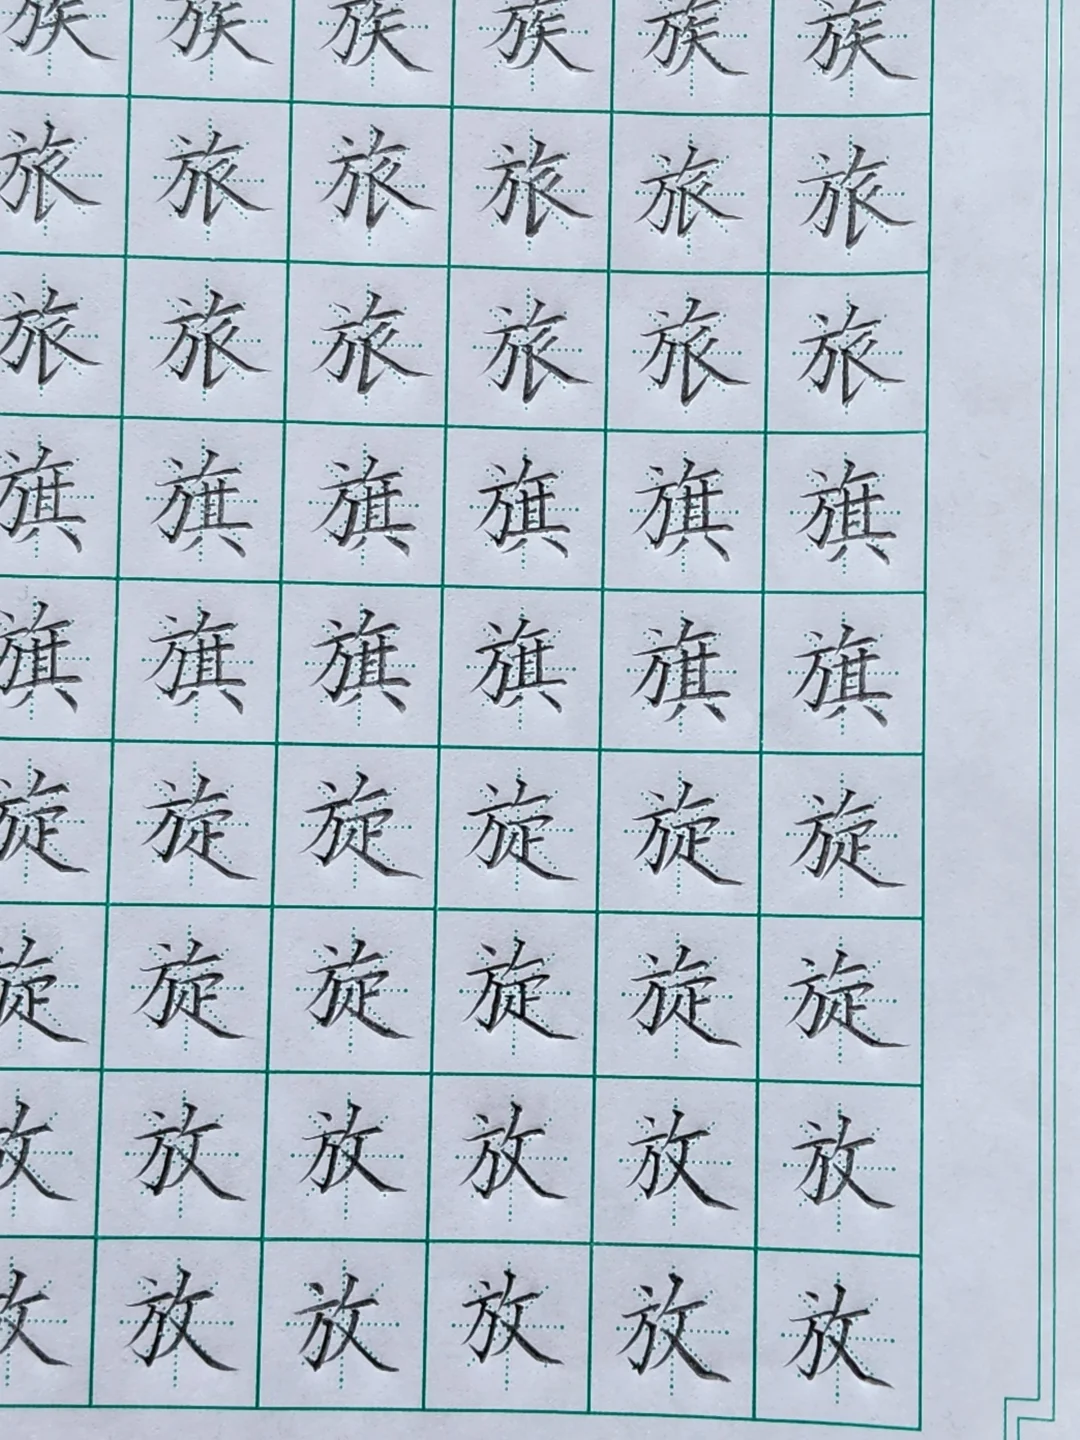 族族族族族族
旅旅旅旅旅旅
旅旅旅旅旅旅
旗旗旗旗旗旗
旗旗旗旗旗旗
旋旋旋旋旋旋
旋旋旋旋旋旋
放放放放放放
放放放放放放